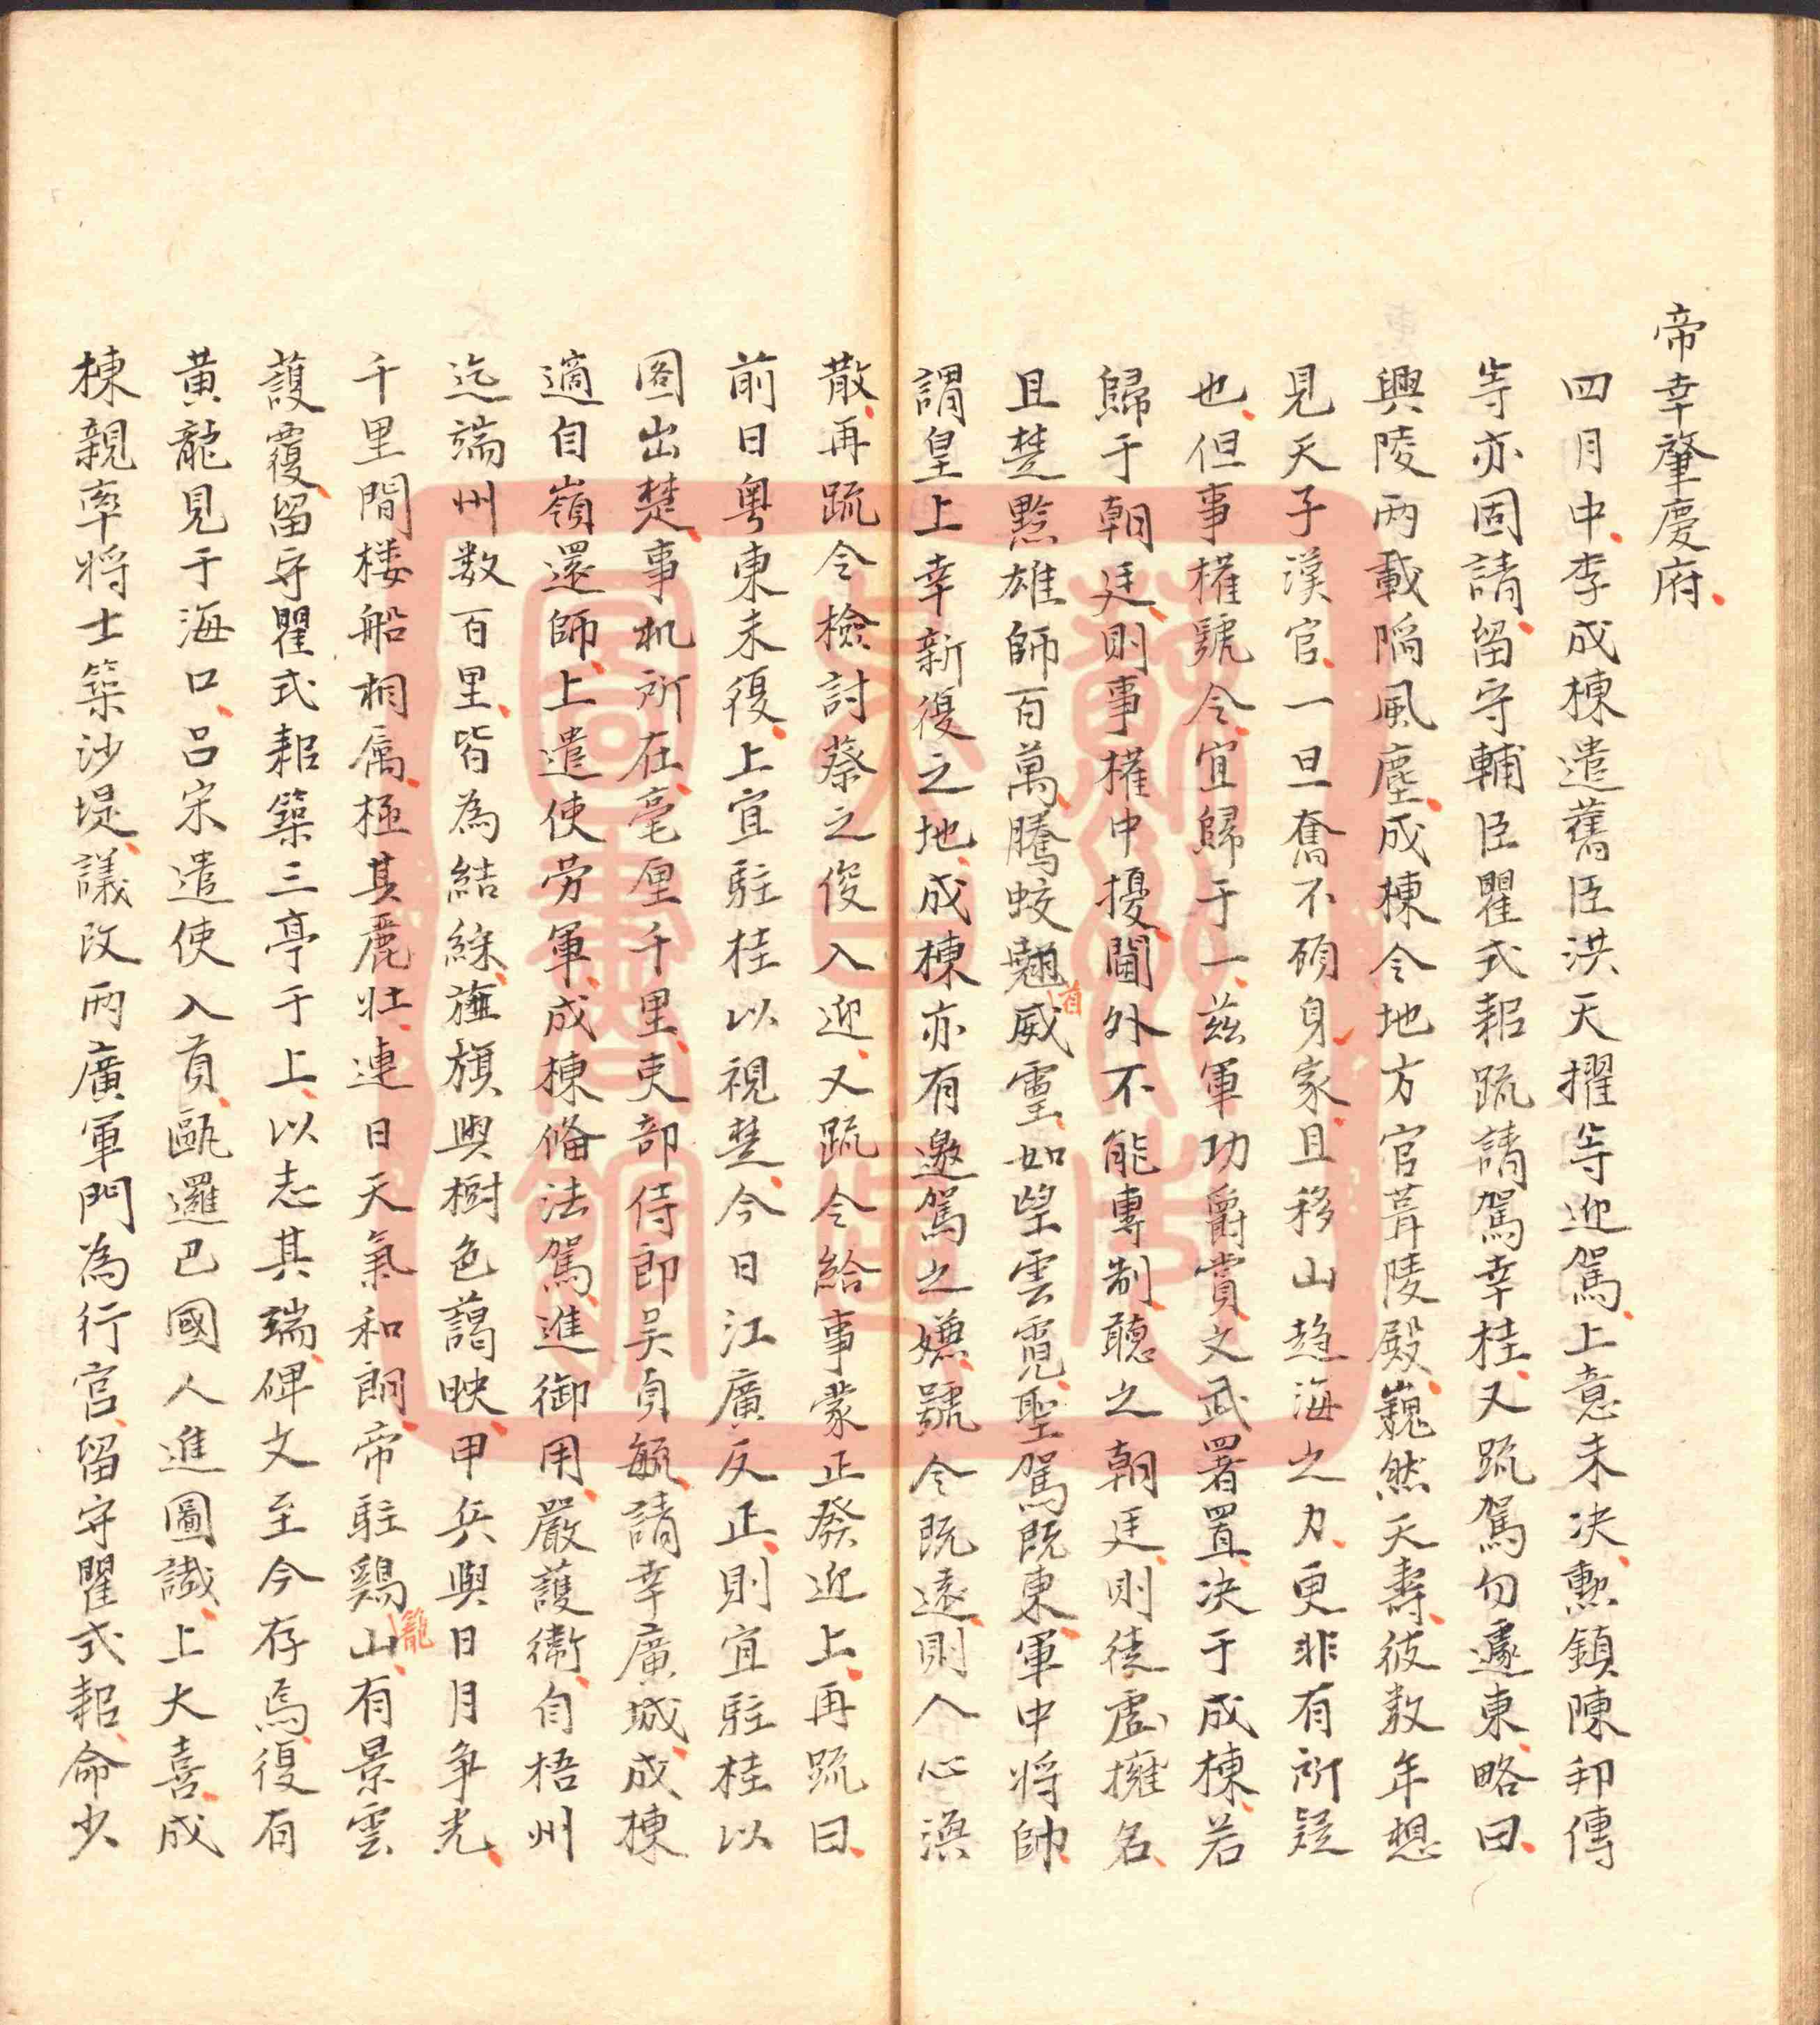 帝幸肇慶府
四月中李成棟遣舊臣洪天擢等迎駕上意未决勲鎮陳邦傳
等亦固請留守輔臣瞿式耜䟽請駕幸桂又䟽駕勿遽東略曰
興陵兩載陷風塵成棟令地方官葺陵殿巍然天壽彼数年想
見天子漢官一旦奮不顧身家且移山趨海之力更非有所疑
也但事權號令宜歸于一茲軍功爵賞文武署置决于成棟若
歸于朝廷則事權中擾閫外不能專制聽之朝廷則徒虛擁名
且楚黔雄師百萬騰蛟翹威靈如望雲霓聖駕既東軍中将帥
首
謂皇上幸新復之地成棟亦有邀駕之嫌號令既遠則人心渙
散再䟽令檢討蔡之俊入迎又䟽令給事蒙正發迎上再䟽曰
前日粤東未復上宜駐桂以視楚今日江廣反正則宜駐桂以
圖出楚事机所在毫厘千里吏部侍郎吴貞毓請幸廣城成棟
適自嶺還師上遣使労軍成棟俻法駕進御用嚴護衛自梧州
迄端州数百里皆為結綵旌旗與樹色藹映甲兵與日月争光
千里間楼船相属極其麗壮連日天氣和朗帝駐鷄山有景雲
籠
護覆留守瞿式耜築三亭于上以志其瑞碑文至今存焉復有
黄龍見于海口吕宋遣使入貢甌邏巴國人進圖讖上大喜成
棟親率将士築沙堤議改兩廣軍門為行宫留守瞿式耜命少